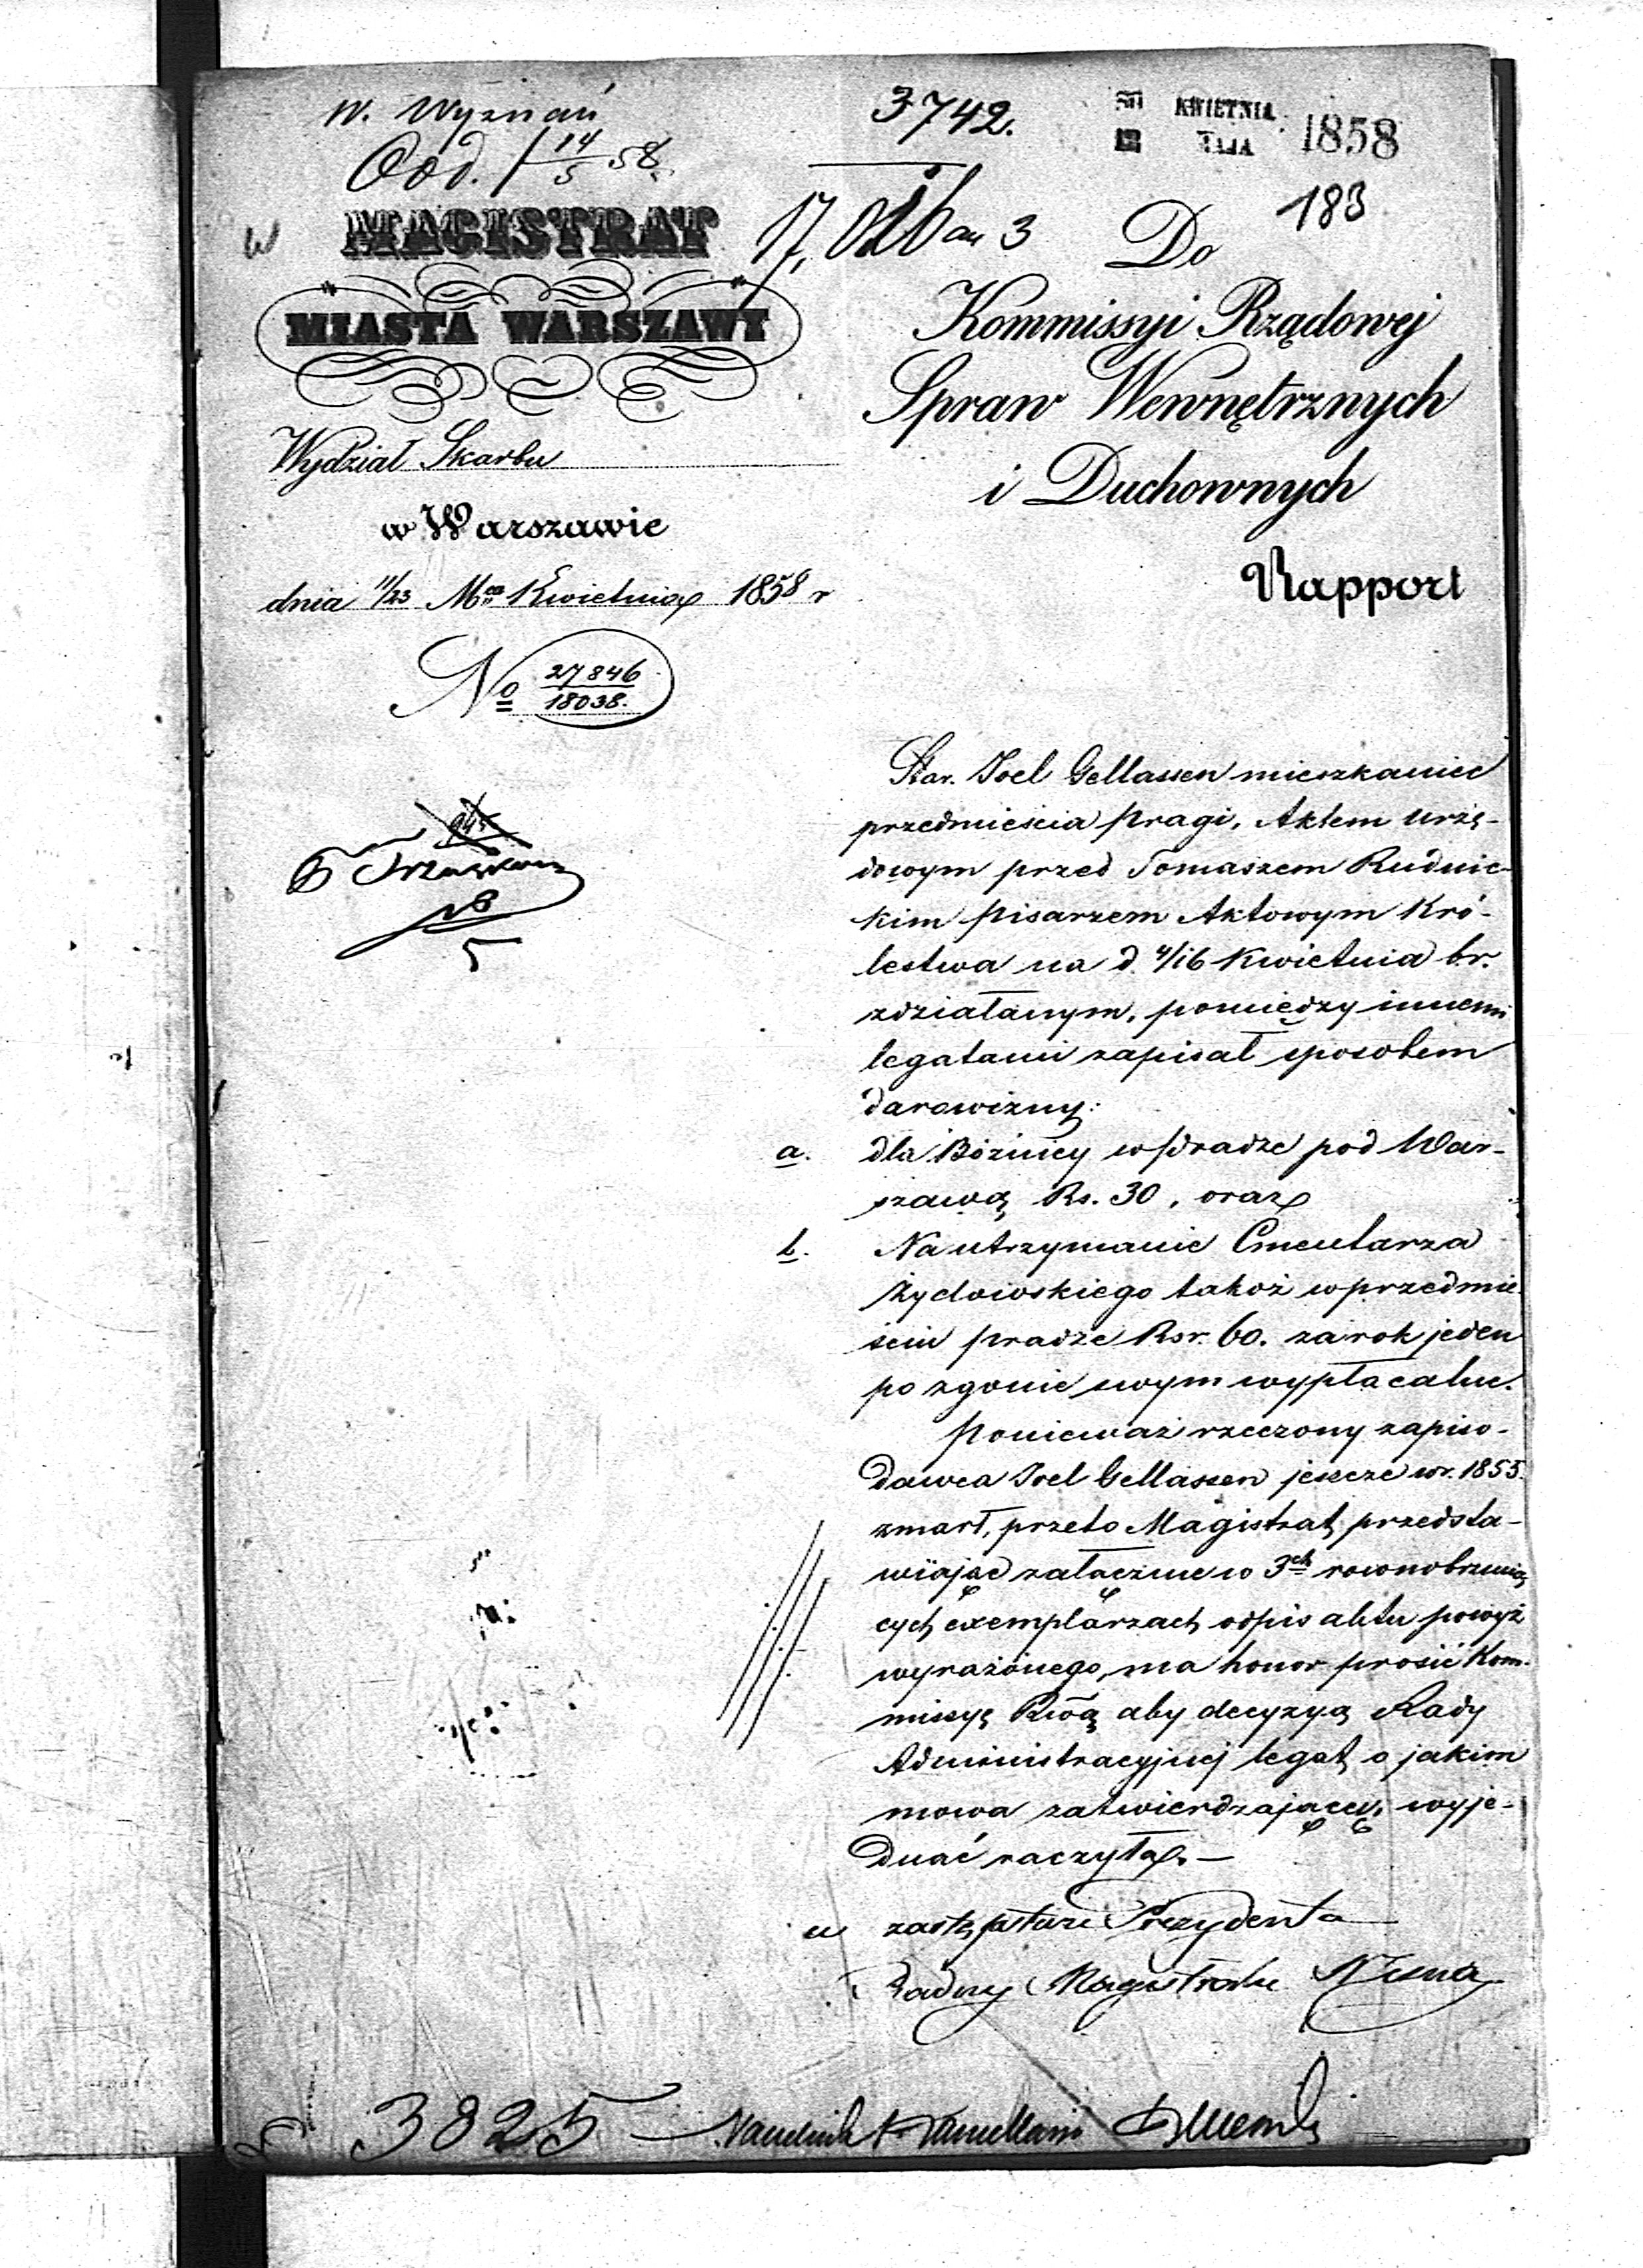 W. Wyznań
Odd. 14/5 58.
3742.
KWIETNIA
MAJA
1858
183
MAGISTRAT
MIASTA WARSZAWY
Wydział Skarbu
w Warszawie
dnia 11/23 Mca Kwietnia 1858 r
No 27846/18038.
Do
Kommissyi Rządowej
Spraw Wewnętrznych
i Duchownych
Rapport
Star. Joel Gellassen mieszkaniec
przedmieścia Pragi, Aktem urzę-
dowym przed Tomaszem Rudnic-
kim Pisarzem Aktowym Kró-
lestwa na d. 4/16 Kwietnia b.r.
zdziałanym, pomiędzy innemi
legatami zapisał sposobem
darowizny:
a. dla Bóżnicy w Pradze pod War-
szawą Rs. 30, oraz
b. Na utrzymanie Cmentarza
Żydowskiego takoż w przedmie-
ściu Pradze Rsr. 60. za rok jeden
po zgonie swym wypłacalne.
Ponieważ rzeczony zapiso-
dawca Joel Gellassen jeszcze w r. 1855
zmarł, przeto Magistrat przedsta-
wiając załączone w 3ch rownobrzmią
cych exemplarzach odpis aktu powyż
wyrażonego, ma honor prosić Kom-
missyę Rwą aby decyzyą Rady
Administracyjnej legat o jakim
mowa zatwierdzającą, wyje-
dnać raczyła.—
w zastępstwie Prezydenta
Radny Magistratu
3825